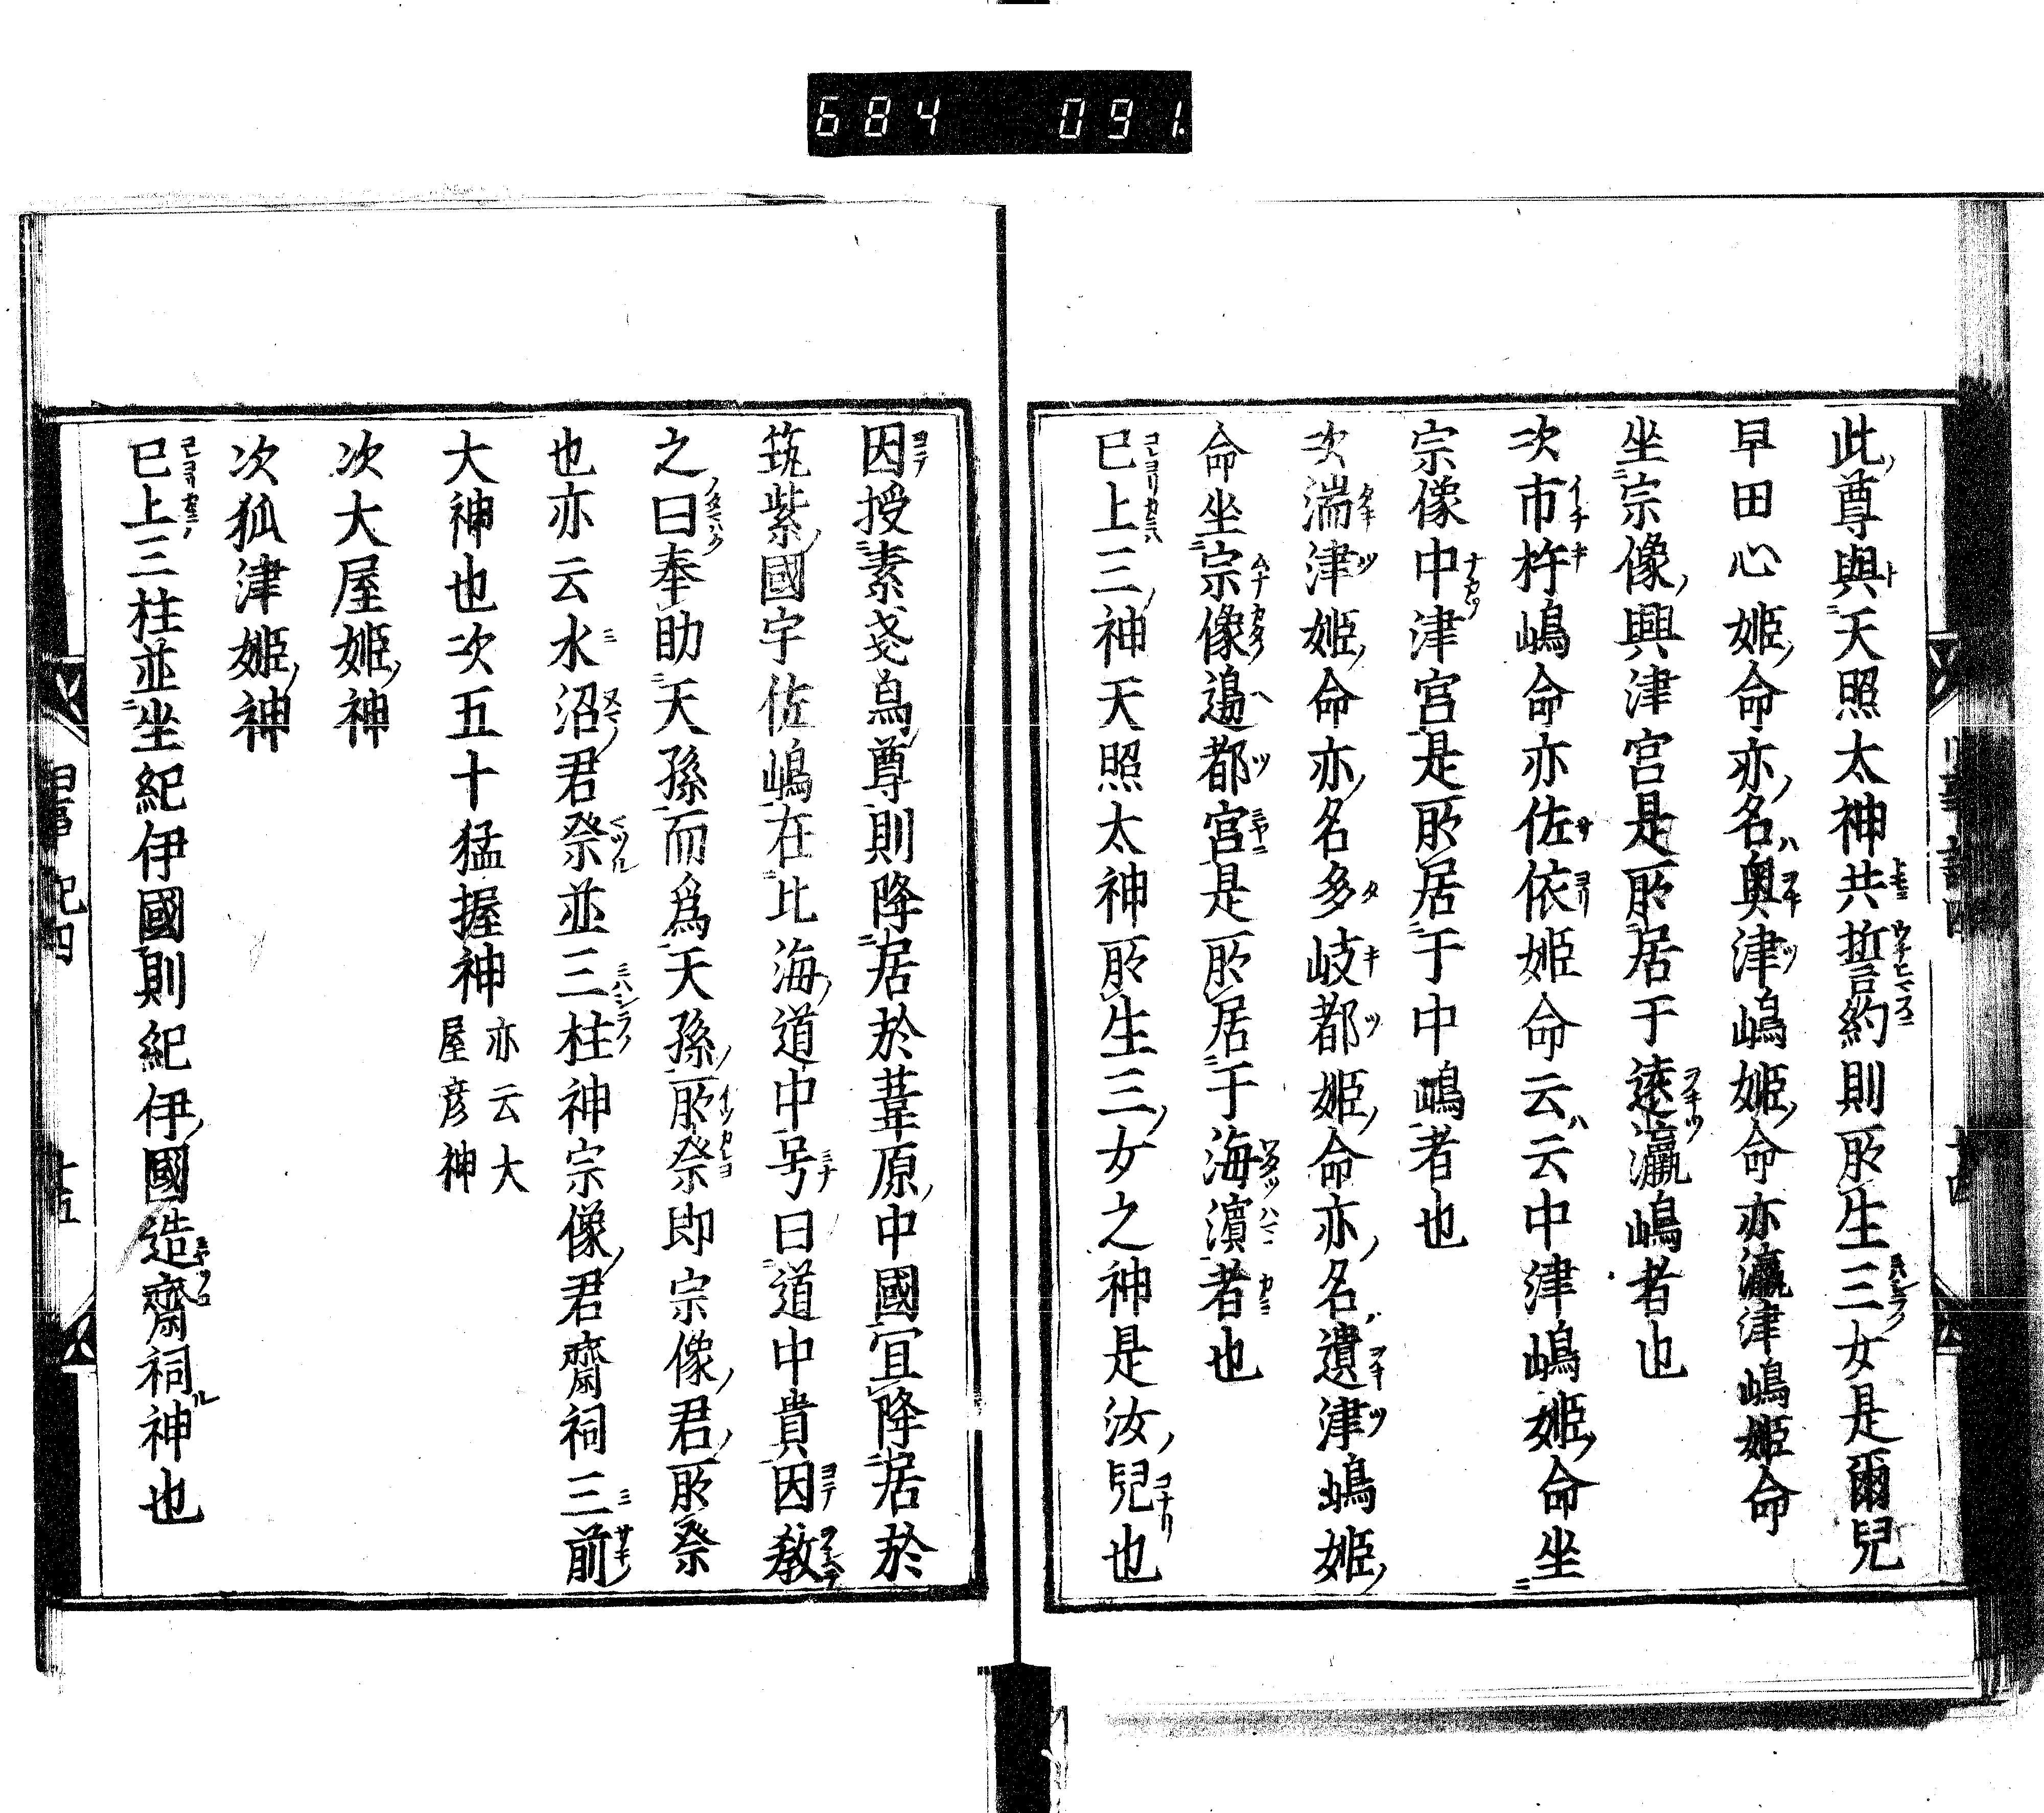 684 091.
此尊與天照太神共誓約則所生三女是爾兒
早田心姬命亦名奧津嶋姬命亦瀛津嶋姬命
坐宗像興津宮是所居于遠瀛嶋者也
次市杵嶋命亦佐依姬命云云中津嶋姬命坐
宗像中津宮是所居于中嶋者也
次湍津姬命亦名多岐都姬命亦名遺津嶋姬
命坐宗像邊都宮是所居于海濵者也
已上三神天照太神所生三女之神是汝兒也
因授素戔烏尊則降居於葦原中國宜降居於
筑紫國宇佐嶋在比海道中号曰道中貴因教
之曰奉助天孫而爲天孫所祭即宗像君所祭
也亦云水沼君祭並三柱神宗像君齋祠三前
大神也次五十猛握神亦云大
屋彦神
次大屋姬神
次狐津姬神
已上三柱並坐紀伊國則紀伊國造齋祠神也